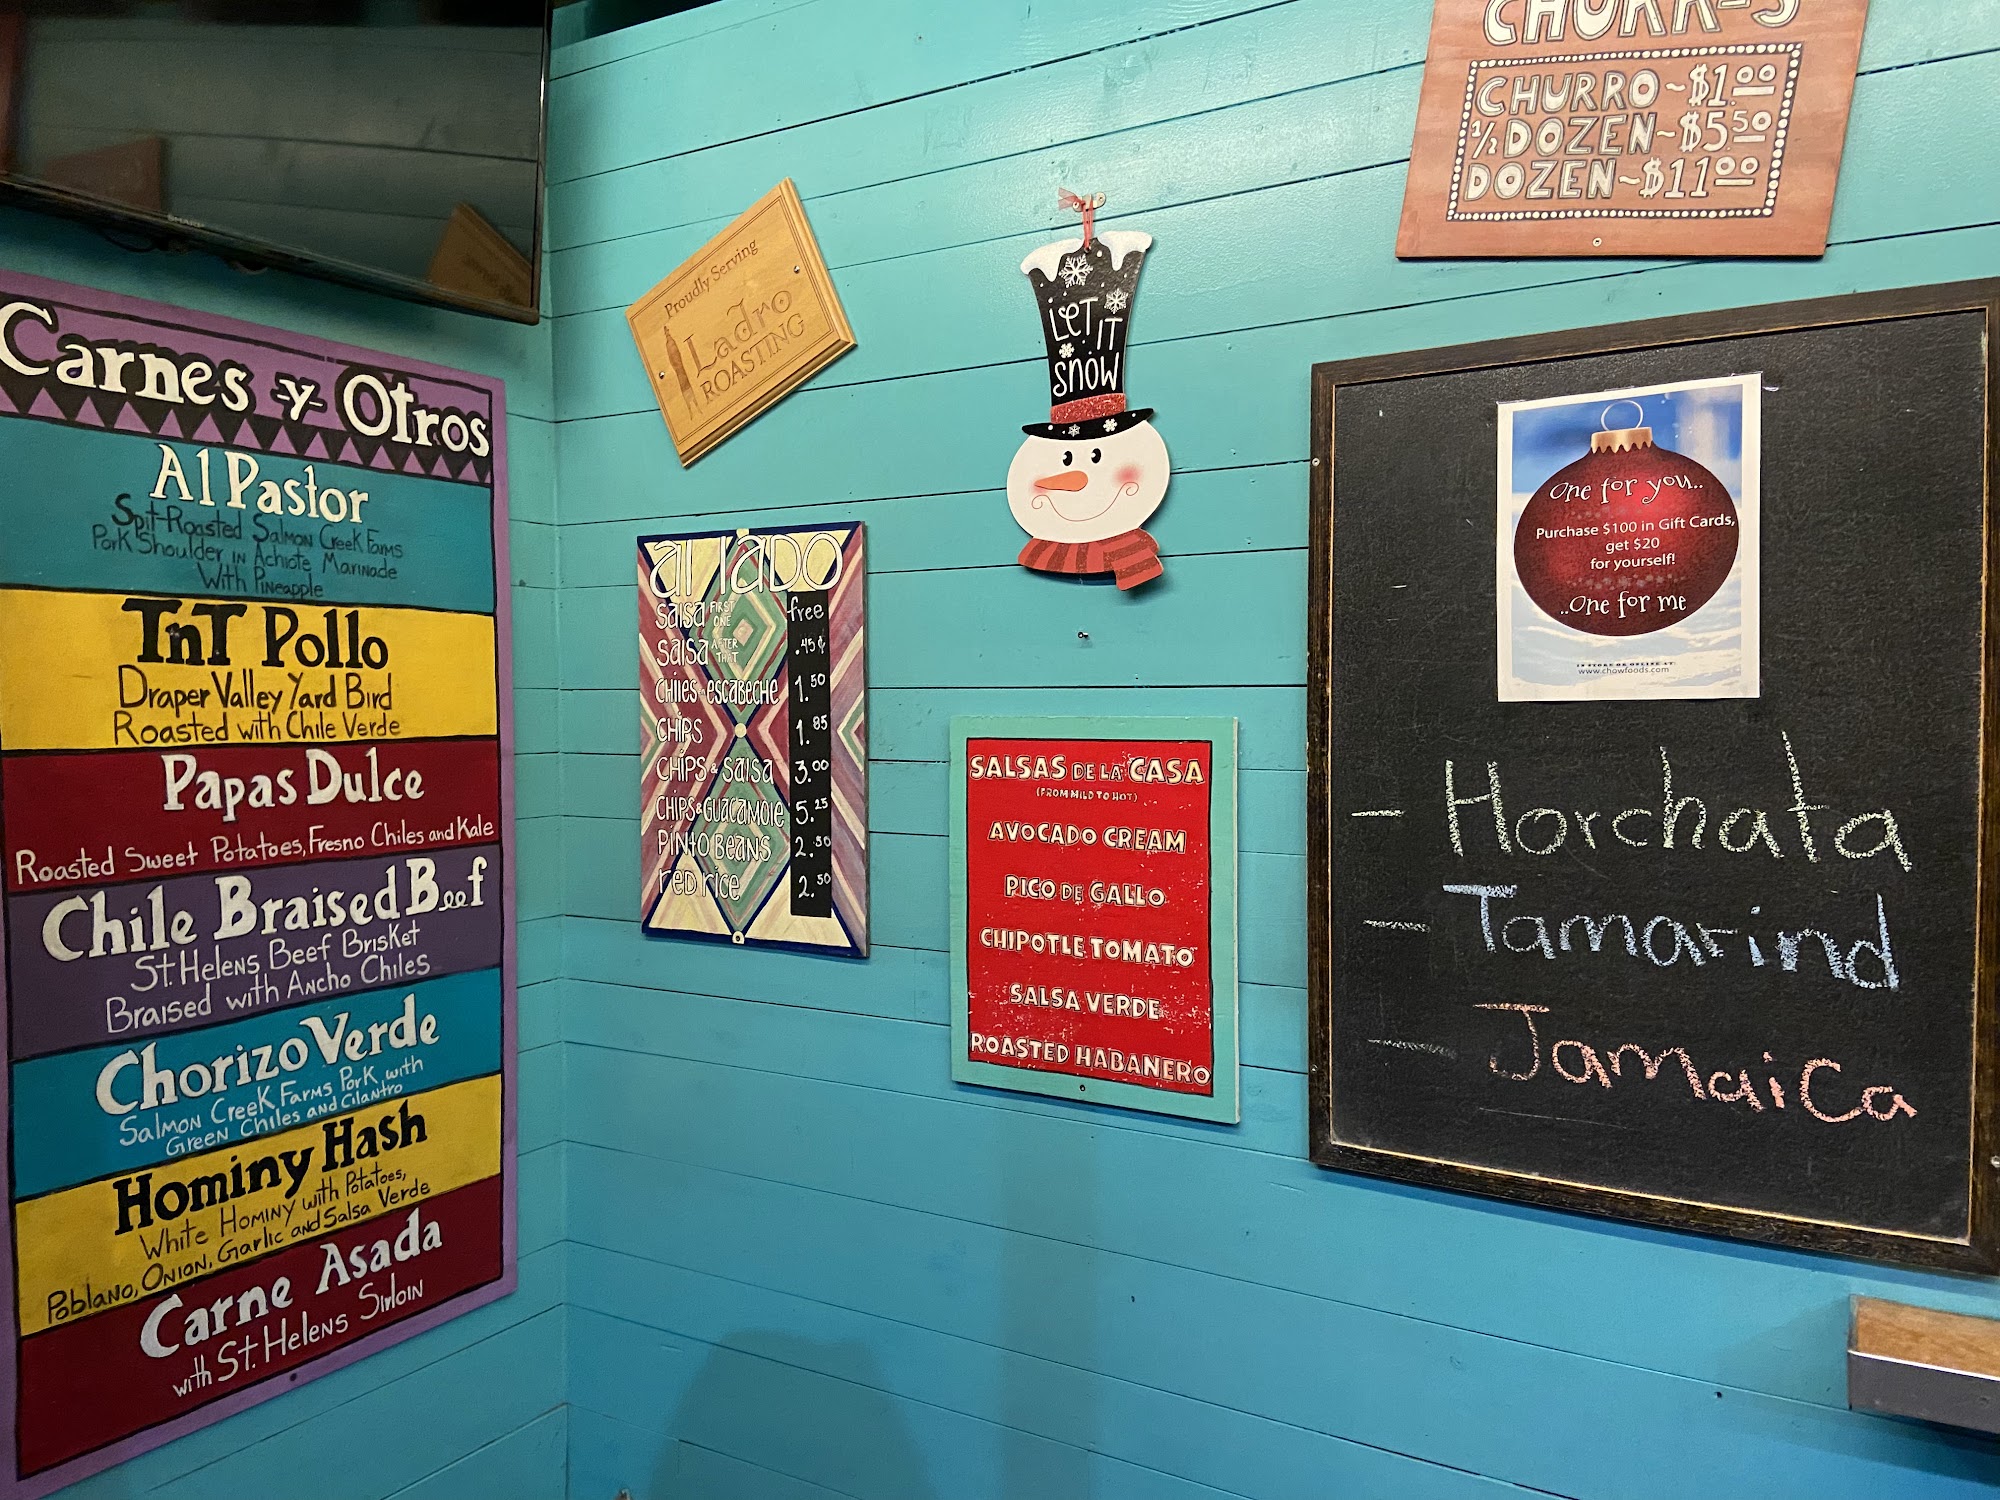 Carnes -y- Otros
Al Pastor
Spit-Roasted Salmon Creek Farms
Pork Shoulder in Achiote Marinade
With Pineapple
TnT Pollo
Draper Valley Yard Bird
Roasted with Chile Verde
Papas Dulce
Roasted Sweet Potatoes, Fresno Chiles and Kale
Chile Braised Beef
St. Helens Beef Brisket
Braised with Ancho Chiles
Chorizo Verde
Salmon Creek Farms Pork with
Green Chiles and Cilantro
Hominy Hash
White Hominy with Potatoes,
Poblano, Onion, Garlic and Salsa Verde
Carne Asada
with St. Helens Sirloin
SHARP
Proudly Serving
Ladro
ROASTING
al lado
salsa FIRST ONE free
salsa AFTER THAT .45¢
CHILES • ESCABECHE 1.50
CHIPS 1.85
CHIPS & SALSA 3.00
CHIPS & GUACAMOLE 5.25
PINTO BEANS 2.50
RED RICE 2.50
LET IT
SNOW
SALSAS DE LA CASA
(FROM MILD TO HOT)
AVOCADO CREAM
PICO DE GALLO
CHIPOTLE TOMATO
SALSA VERDE
ROASTED HABANERO
CHURRO ~ $1.00
1/2 DOZEN ~ $5.50
DOZEN ~ $11.00
One for you..
Purchase $100 in Gift Cards,
get $20
for yourself!
..One for me
IN STORE OR ONLINE AT:
www.chowfoods.com
- Horchata
- Tamarind
- Jamaica